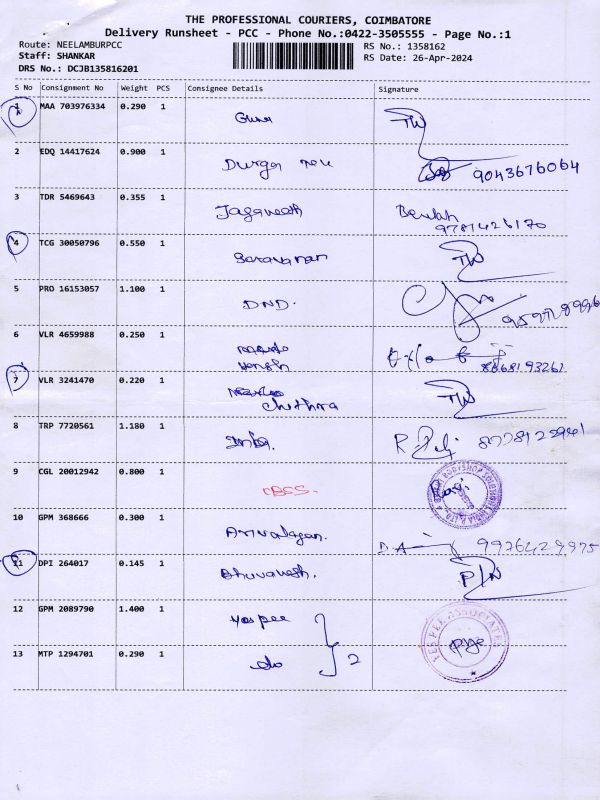 THE PROFESSIONAL COURIERS, COIMBATORE
Delivery Runsheet - PCC - Phone No.:0422-3505555 - Page No.:1
Route: NEELAMBURPCC RS No.: 1358162
Staff: SHANKAR RS Date: 26-Apr-2024
DRS No.: DCJB135816201
S No Consignment No Weight PCS Consignee Details Signature
1 MAA 703976334 0.290 1 Guna
2 EDQ 14417624 0.900 1 Durga 9043676064
3 TDR 5469643 0.355 1 Jaganeeth Beulah
9781426170
4 TCG 30050796 0.550 1 Saravanan
5 PRO 16153057 1.100 1 DND.
6 VLR 4659988 0.250 1
8668193262
7 VLR 3241470 0.220 1 Chithra
8 TRP 7720561 1.180 1
9 CGL 20012942 0.800 1 CBSS.
10 GPM 368666 0.300 1 Arivalagan. D.A 9976429975
11 DPI 264017 0.145 1 Bhuvanesh.
12 GPM 2089790 1.400 1 Yes pee
13 MTP 1294701 0.290 1 do 2
YES PEE ASSOCIATES